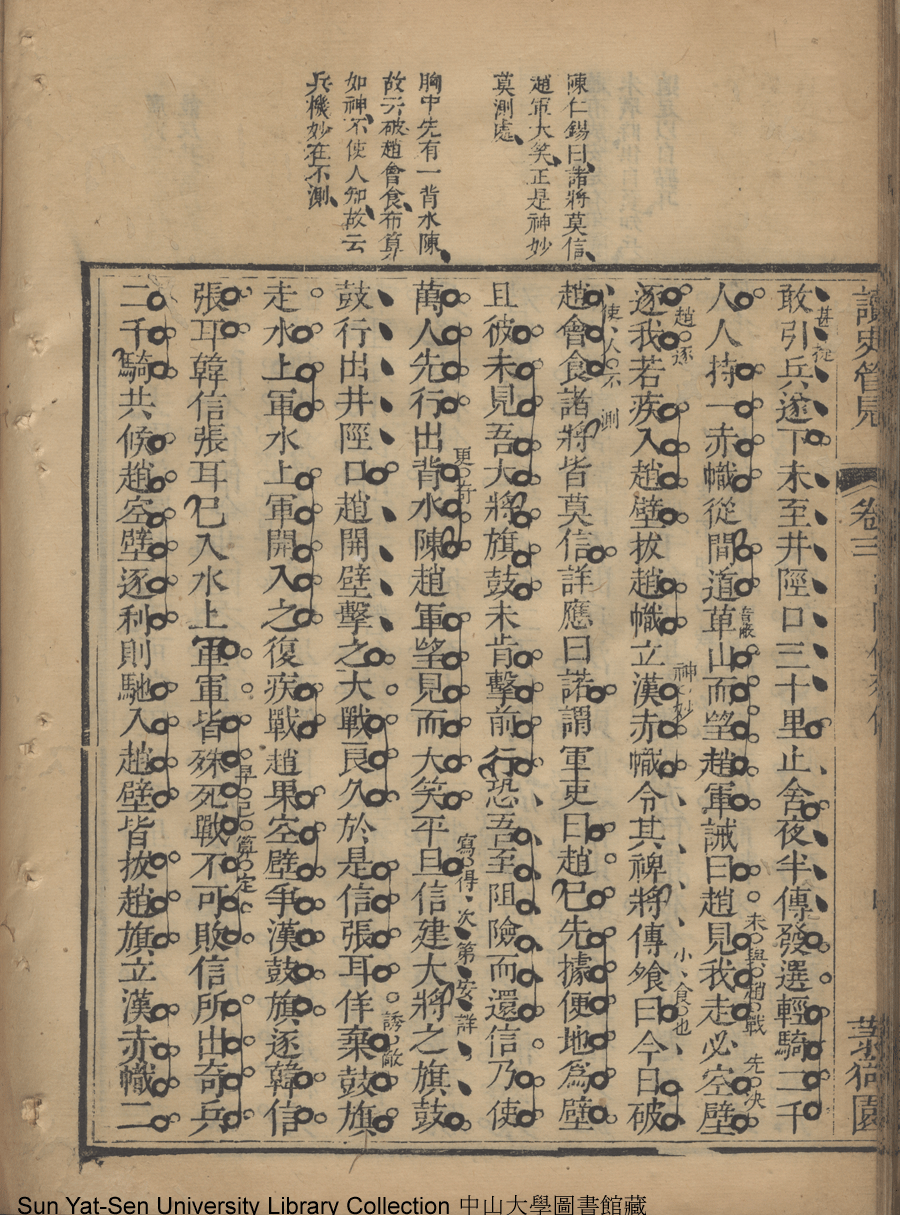 陳仁錫曰諸將莫信
趙軍大笑正是神妙
莫測處
胸中先有一背水陳
故云破趙會食布算
如神不使人知故云
兵機妙在不測
讀史管見
卷三
敢引兵遂下未至井陘口三十里止舍夜半傳發選輕騎二千
人人持一赤幟從間道萆山而望趙軍誡曰趙見我走必空壁
音蔽
未與趙戰先決
趙逐
逐我若疾入趙壁拔趙幟立漢赤幟令其裨將傳飧曰今日破
神妙
小食也
使人不測
趙會食諸將皆莫信詳應曰諾謂軍吏曰趙已先據便地爲壁
且彼未見吾大將旗鼓未肯擊前行恐吾至阻險而還信乃使
更奇
寫得次第安詳
萬人先行出背水陳趙軍望見而大笑平旦信建大將之旗鼓
鼓行出井陘口趙開壁擊之大戰良久於是信張耳佯棄鼓旗
誘敵
走水上軍水上軍開入之復疾戰趙果空壁爭漢鼓旗逐韓信
早已算定
張耳韓信張耳已入水上軍軍皆殊死戰不可敗信所出奇兵
二千騎共候趙空壁逐利則馳入趙壁皆拔趙旗立漢赤幟二
Sun Yat-Sen University Library Collection 中山大學圖書館藏